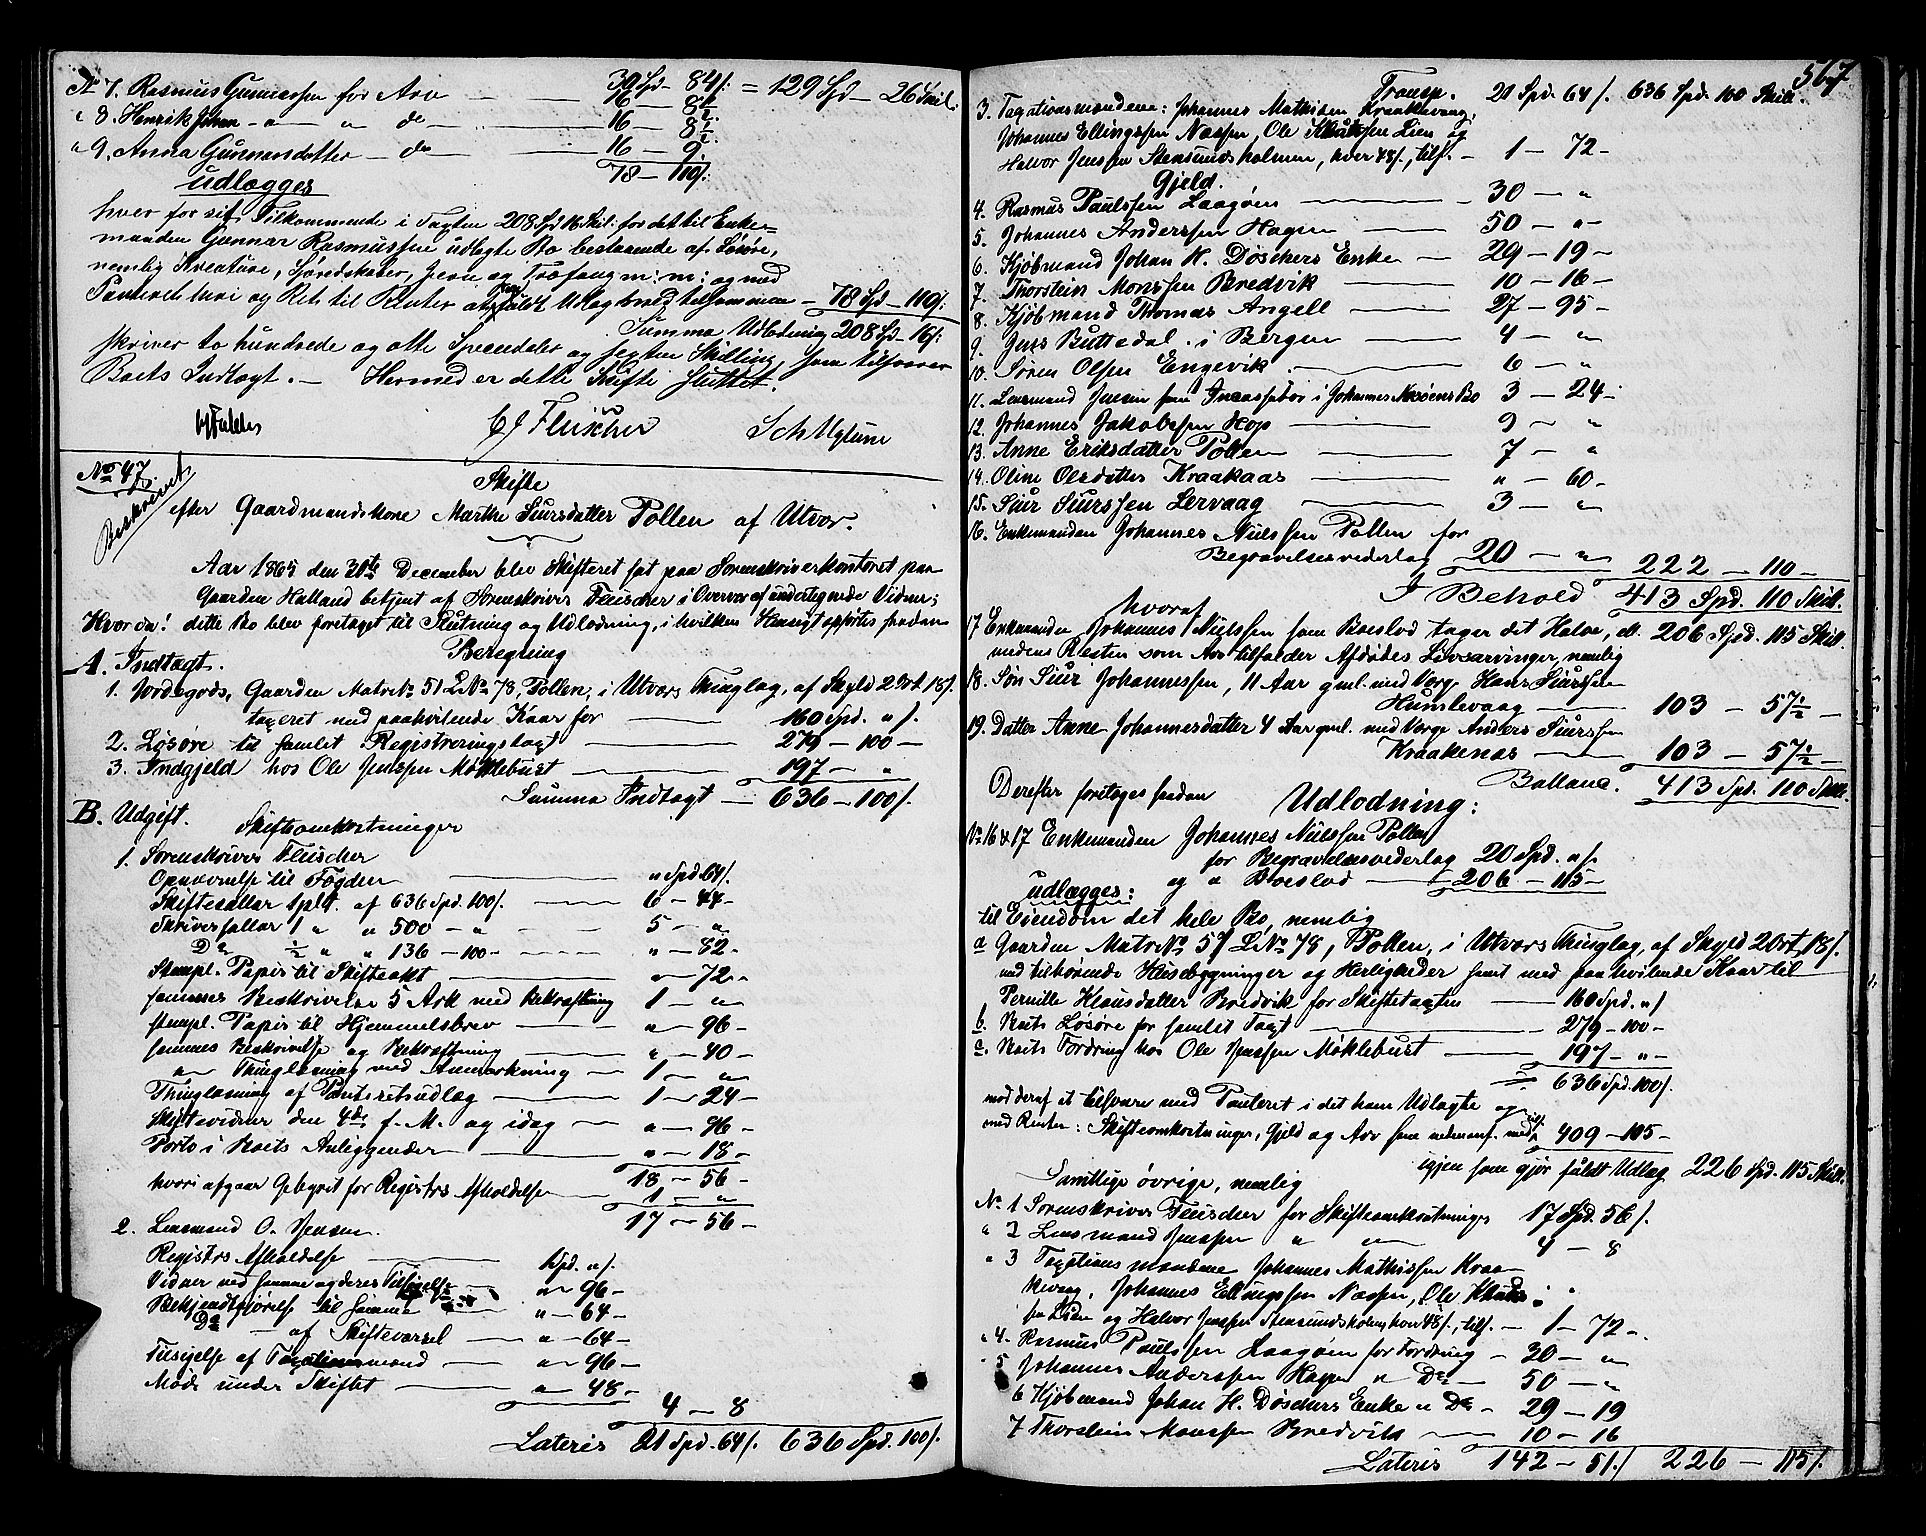 No 7. Rasmus Gunnarssen for Arv — 39 Spd 84 ß = 129 Spd — 26 Skil.
" 8. Henrik — " — " do — 16 — 8½
16 — 8½
" 9. Anna Gunnarsdatter — do — 16 — 9
udlægges 78 — 119 ß
hver for sit Tilkommende i Taxten 208 Spd 16 Skil. for det til Enke-
manden Gunnar Rasmussen udlagte Bo bestaaende af Løsøre,
nemlig Kreature, Søredskaber, Jern og Træfang m: m: og med
Panteret heri og Ret til Renter fuldt Udlag med tilsammen — 78 Spd — 119 ß
Summa Udlodning 208 Spd — 16 ß
skriver to hundrede og otte Speciedaler og sexten Skilling, som tilsvarer
Boets Indtægt. — Hermed er dette Skifte sluttet.
CJ Fleischer
No 47
Beskrevet
Skifte
efter Gaardmandskone Marthe Siursdatter Pollen af Utvær.
Aar 1865 den 30te December blev Skifteret sat paa Sorenskriverkontoret paa
Gaarden Halland betjent af Sorenskriver Fleischer i Overvær af undertegnede Vidner;
Hvor da! dette Bo blev foretaget til Slutning og Udlodning, i hvilken Hensigt opførtes saadan
Beregning
A. Indtægt.
1. Jordegods, Gaarden Matr No 51 L No 78, Pollen, i Utværs Thinglag, af Skyld 2 Ort 18 ß,
taxeret med paahvilende Kaar for — 160 Spd. " ß.
2. Løsøre til samlet Registreringstaxt — 279 — 100 —
3. Indgjeld hos Ole Jenssen Møklebust — 197 — "
Summa Indtægt — 636 — 100 ß.
B. Udgift.
Skifteomkostninger
1. Sorenskriver Fleischer
Opnævnelse til Fogden — " Spd 64 ß.
Skiftesallar 1 pCt. af 636 Spd. 100 ß. — 6 — 44 —
Skriversallar 1 " " 500 — " — 5 — "
Do ½ " " 136 — 100 — " — 82 —
Stempl. Papir til Skifteakt — " — 72 —
sammes Beskrivelse 5 Ark med Bekræftning 1 — "
stempl. Papir til Hjemmelsbrev — " — 96 —
sammes Beskrivelse og Bekræftning — " — 40 —
" Thinglæsning med Anmærkning — 1 — "
Thinglæsning af Panteretsudlæg — 1 — 24
Skiftevidner den 4de f. M. og idag — " — 96 —
Porto i Boets Anliggender — " — 18 —
18 — 56 —
hvori afgaar Gebyret for Registrs Afholdelse — 1 — "
17 — 56 —
2. Lensmand O. Jensen.
Registrs Afholdelse — 1 Spd. " ß.
Vidner ved samme og deres Tilsigelse — " — 96 —
Bekjendtgjørelse til samme — " — 64 —
Do — af Skiftevarsel — " — 64 —
Tilsigelse af Taxationsmænd — " — 96 —
Møde under Skiftet — " — 48 —
4 — 8
Lateris 21 Spd. 64 ß. 636 Spd. 100 ß.
567
Transp. 21 Spd. 64 ß. 636 Spd. 100 Skill.
3. Taxationsmændene: Johannes Mathissen Kraakevaag,
Johannes Ellingssen Næssen, Ole Knudssen Lien og
Halvor Jenssen Stensundsholmen, hver 48 ß, tils. — 1 — 72 —
Gjeld.
4. Rasmus Paulssen Laagøen — 30 — "
5. Johannes Anderssen Hagen — 50 — "
6. Kjøbmand Johan H. Døschers Enke — 29 — 19 —
7. Thorstein Monssen Bredvik — 10 — 16 —
8. Kjøbmand Thomas Angell — 27 — 95 —
9. Jens Buttedal i Bergen — 4 — "
10. Søren Olsen Engevik — 6 — "
11. Lensmand Jensen som Incassator i Johannes Bo 3 — 24 —
12. Johannes Jakobssen Hop — 9 — "
13. Anne Eriksdatter Pollen — 7 — "
14. Oline Olsdatter Kraakaas — " — 60 —
15. Siur Siurssen Lervaag — 3 — "
16. Enkemanden Johannes Nielssen Pollen for
Begravelsesvederlag — 20 — " 222 — 110 —
I Behold 413 Spd. 110 Skill.
hvoraf
17 Enkemanden Johannes Nielssen som Boeslod tager det Halve, ell. 206 Spd. 115 Skill.
medens Resten som Arv tilfalder Afdødes Livsarvinger, nemlig
18. Søn Siur Johannessen, 11 Aar gml. med Verge Hans Siurssen
Humlevaag — 103 — 57½ —
19. Datter Anne Johannesdatter 4 Aar gml. med Verge Anders Siurssen
Kraakenæs — 103 — 57½ —
Ballance. 413 Spd. 110 Skill.
Derefter foretoges saadan Udlodning:
No 16 & 17 Enkemanden Johannes Nielssen Pollen
for Begravelsesvederlag 20 Spd. " ß.
og " Boeslod — 206 — 115 —
udlægges:
til Eiendom det hele Bo, nemlig
a Gaarden Matr No 51 L No 78, Pollen, i Utværs Thinglag, af Skyld 2 Ort 18 ß.
med tilhørende Husebygninger og Herligheder samt med paahvilende Kaar til
Pernille Klausdatter Bredvik for Skiftetaxten — 160 Spd. " ß
b. Boets Løsøre for samlet Taxt — 279 — 100 —
c. Boets Fordring hos Ole Jenssen Møklebust — 197 — " —
= 636 Spd. 100 ß.
mod deraf at tilsvare med Panteret i det ham Udlagte og
med Renter: Skifteomkostninger, Gjeld og Arv som nedenanf. med 409 — 105 —
igjen som gjør fuldt Udlæg 226 Spd. 115 Skill.
Samtlige øvrige, nemlig
No 1 Sorenskriver Fleischer for Skifteomkostninger 17 Spd. 56 ß.
" 2 Lensmand Jenssen " " 4 — 8
" 3 Taxationsmændene Johannes Mathissen Kraa-
kevaag, Johannes Ellingssen Næssen, Ole Knuds-
sen Lien og Halvor Jenssen Stensundsholmen, hver 48 ß., tils. — 1 — 72 —
" 4. Rasmus Paulssen Laagøen for Fordring — 30 — "
" 5 Johannes Anderssen Hagen " Do — 50 — "
6 Kjøbmand Johan H. Døschers Enke " Do — 29 — 19
7 Thorstein Monssen Bredvik — 10 — 16
Lateris 142 — 51 ß. 226 — 115 ß.